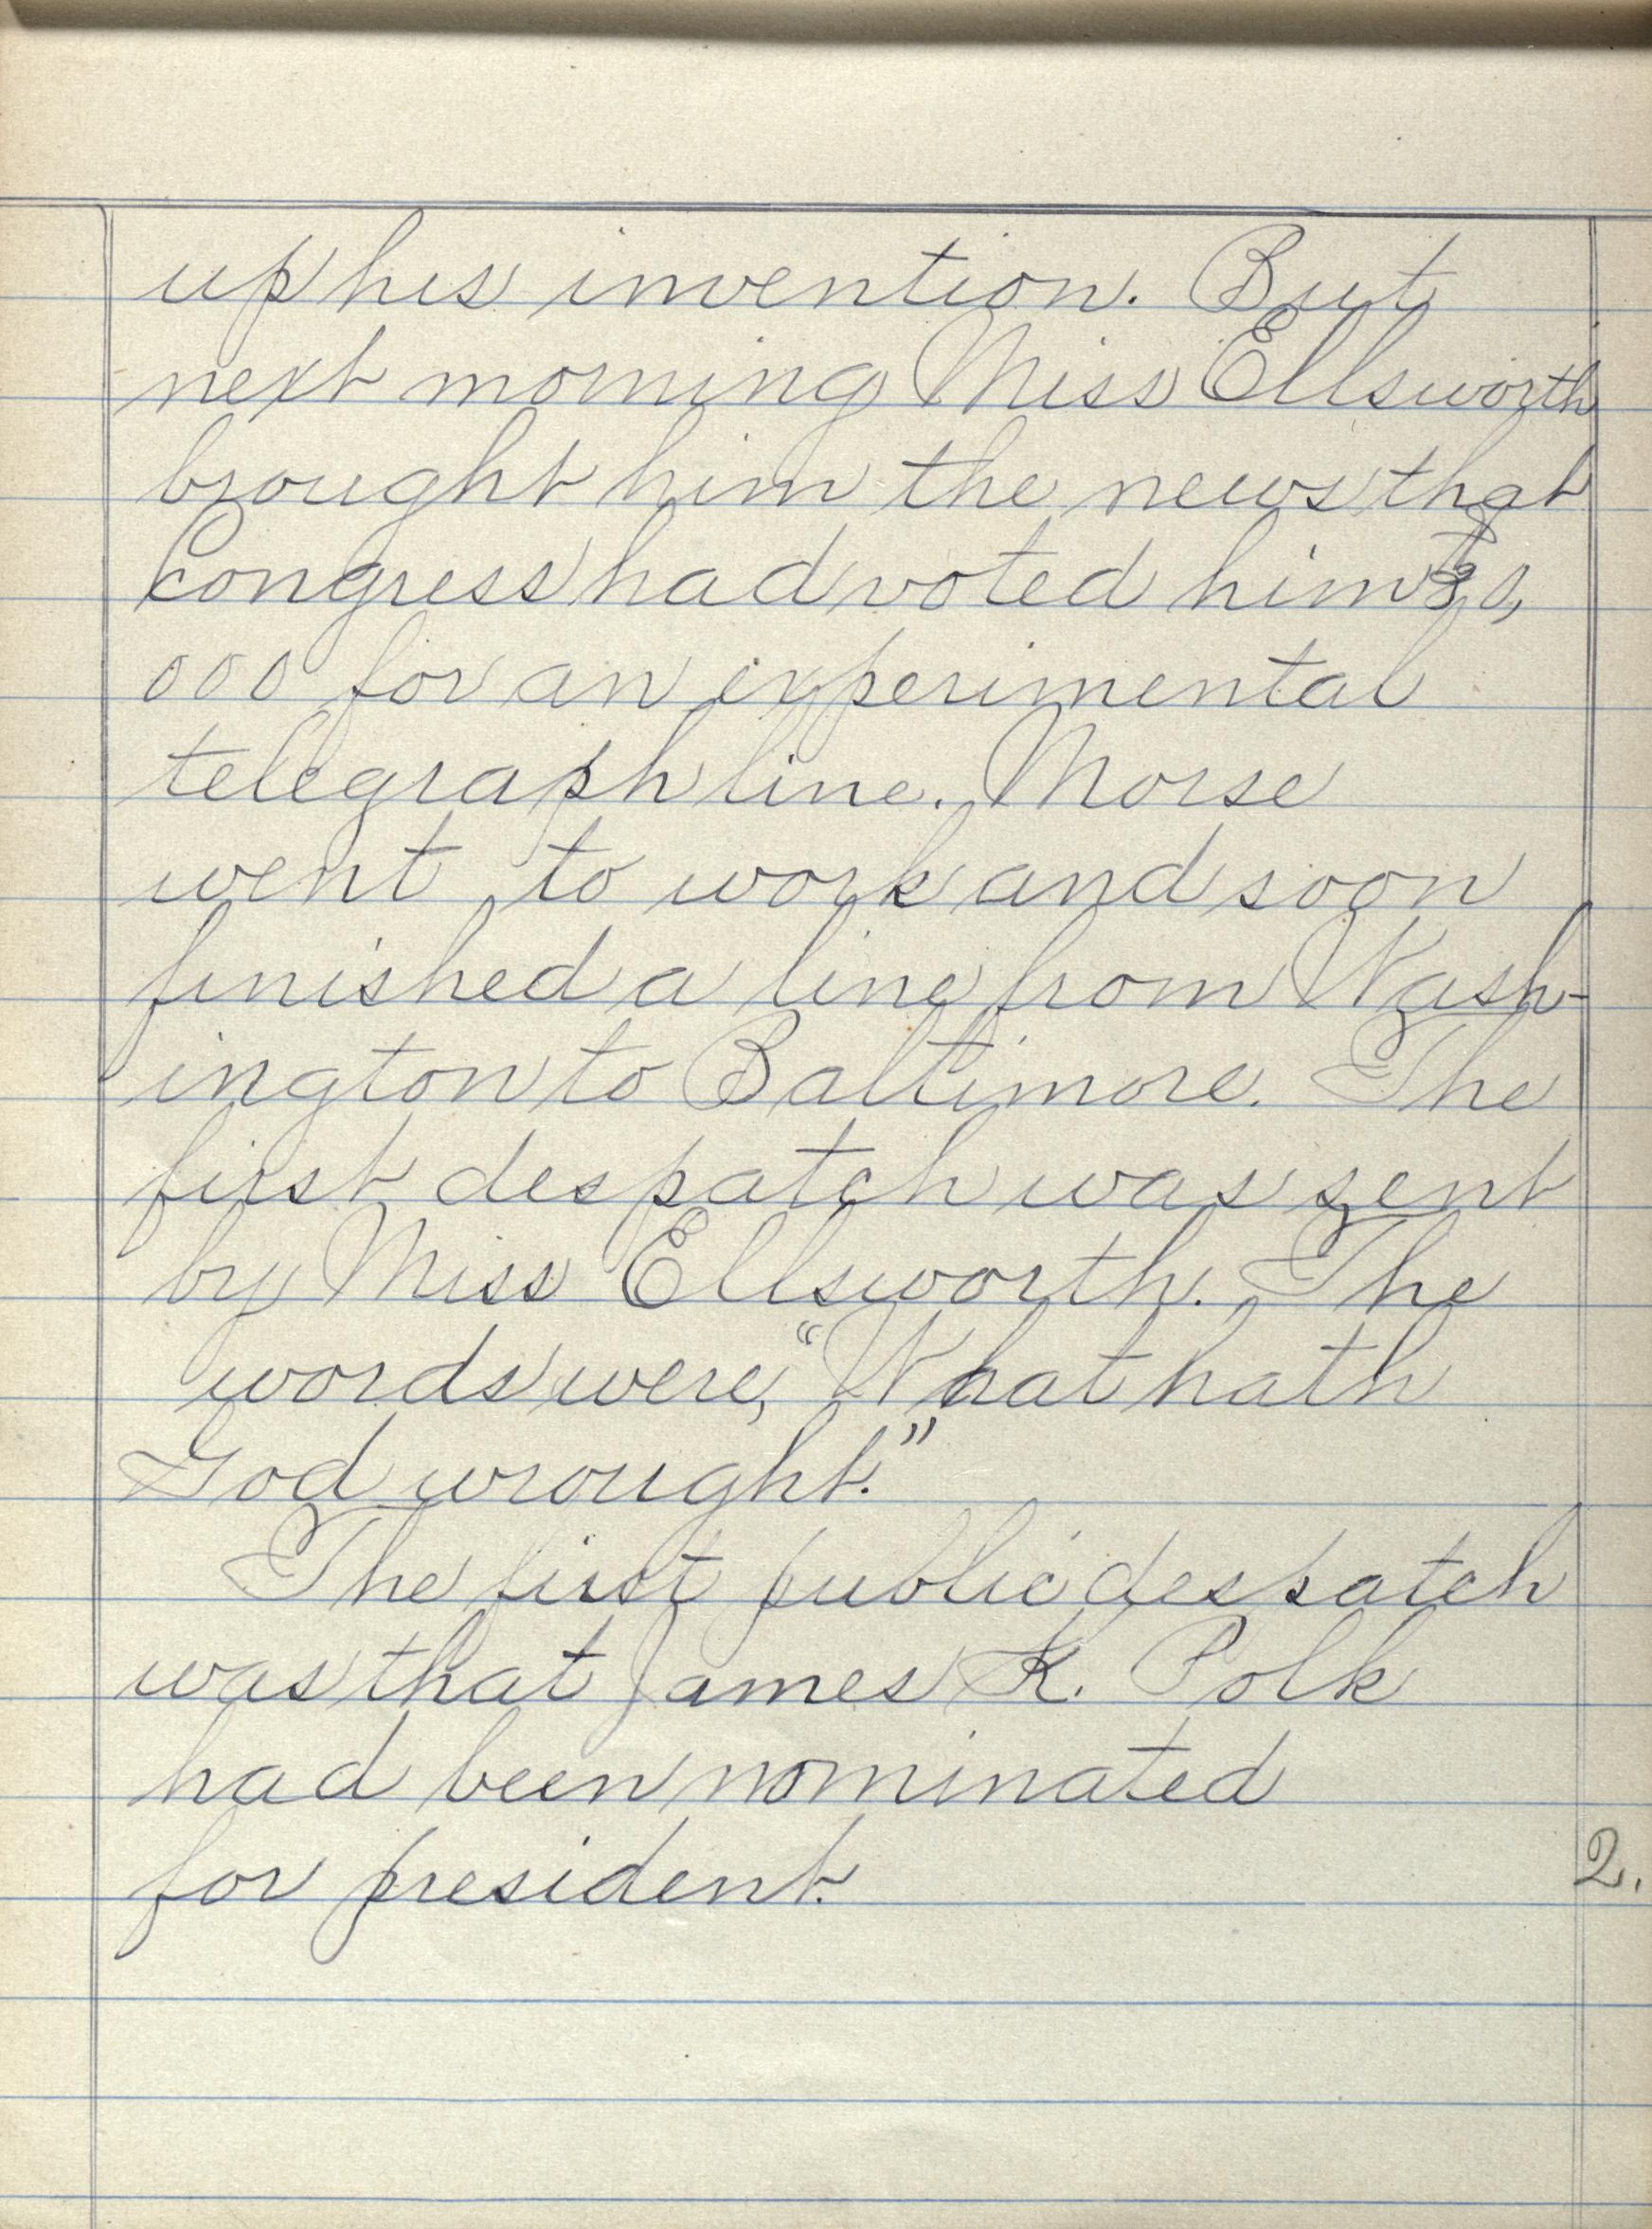 up his invention. But
next morning Miss Ellsworth
brought him the news that
Congress had voted him $30,
000 for an experimental
telegraph line. Morse
went to work and soon
finished a line from Wash-
ington to Baltimore. The
first despatch was sent
by Miss Ellsworth. The
words were, "What hath
God wrought."
The first public despatch
was that James K. Polk
had been nominated
for president.
2.